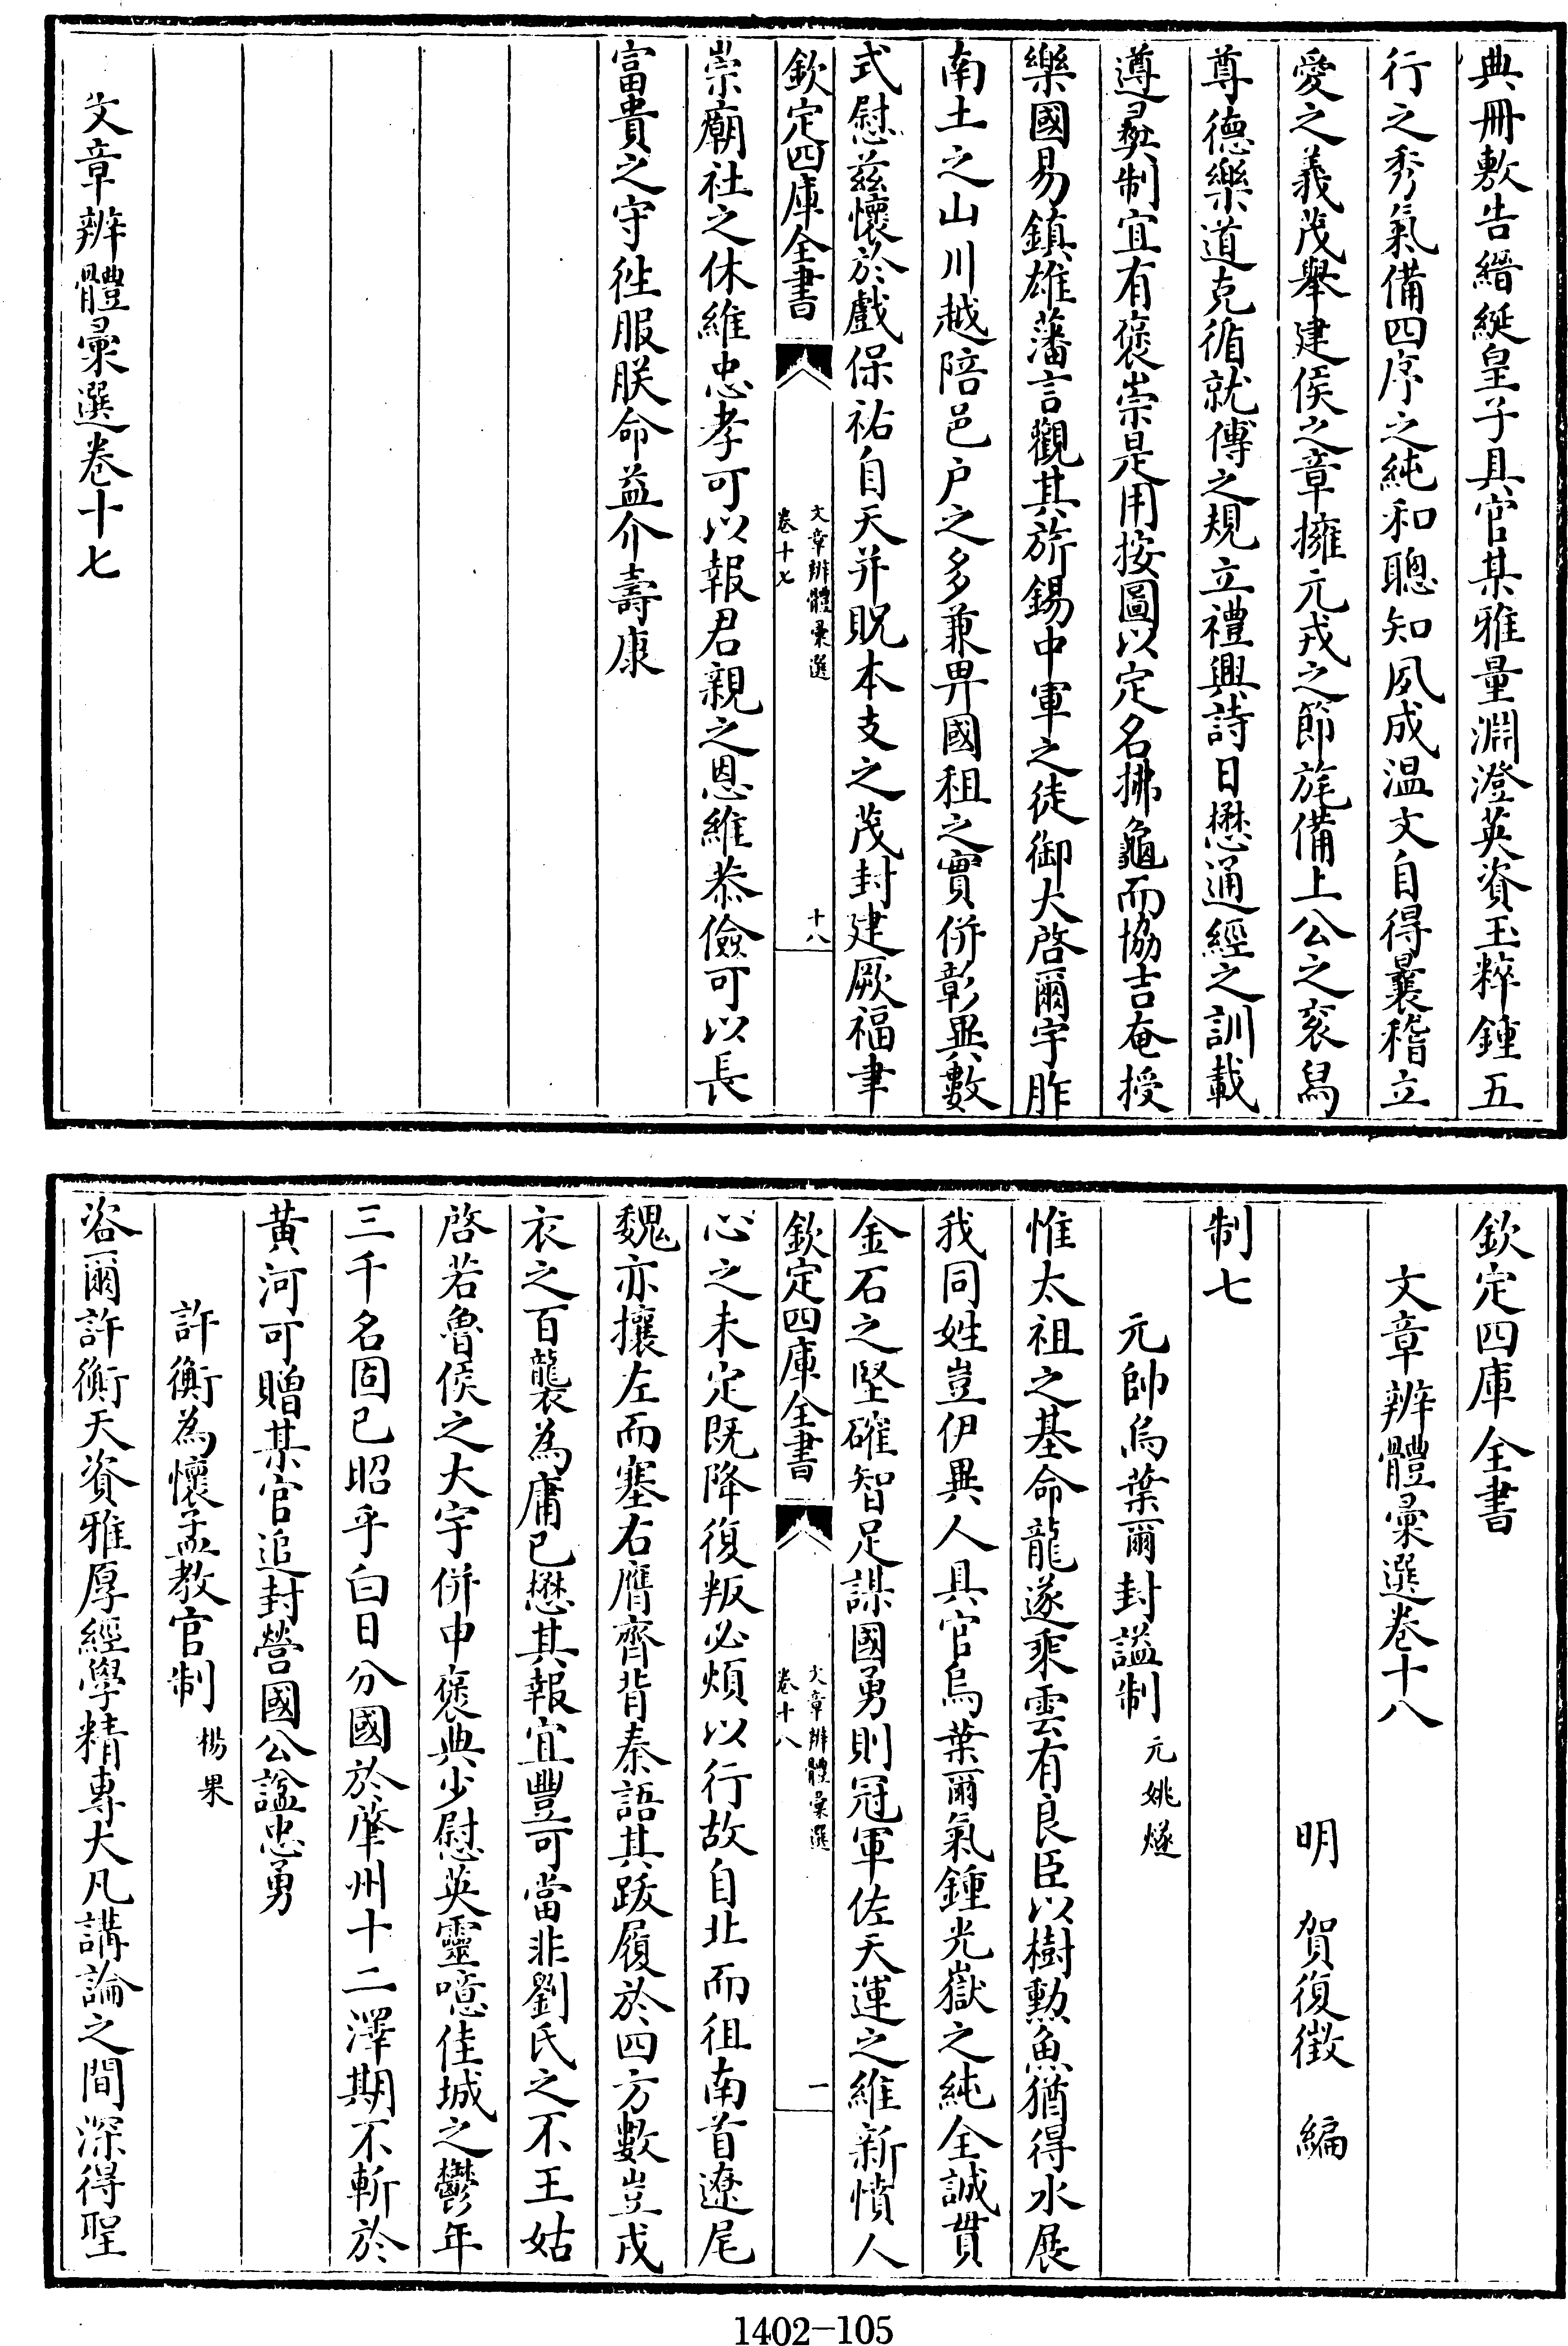 典冊敷告縉綖皇子具官某雅量淵澄英資玉粹鍾五
行之秀氣備四序之純和聰知夙成温文自得曩稽立
愛之義茂舉建侯之章擁元戎之節旄備上公之衮舄
尊德樂道克循就傅之規立禮興詩日懋通經之訓載
遵彞制宜有褒崇是用按圖以定名拂龜而協吉奄授
樂國易鎮雄藩言觀其旂錫中軍之徒御大啓爾宇胙
南土之山川越陪邑户之多兼畀國租之實併彰異數
式慰兹懷於戲保祐自天并貺本支之茂封建厥福聿
欽定四庫全書
文章辨體彚選
卷十七
十八
崇廟社之休維忠孝可以報君親之恩維恭儉可以長
富貴之守徃服朕命益介壽康
文章辨體彚選卷十七
欽定四庫全書
文章辨體彚選卷十八
明 賀復徵 編
制七
元帥烏葉爾封謚制 元姚燧
惟太祖之基命龍遂乘雲有良臣以樹勲魚猶得水展
我同姓豈伊異人具官烏葉爾氣鍾光嶽之純全誠貫
金石之堅確智足謀國勇則冠軍佐天運之維新憤人
欽定四庫全書
文章辨體彚選
卷十八
一
心之未定既降復叛必煩以行故自北而徂南首遼尾
魏亦攘左而塞右膺齊背秦語其跋履於四方數豈戎
衣之百襲為庸已懋其報宜豐可當非劉氏之不王姑
啓若魯侯之大宇併申褒典少慰英靈噫佳城之鬱年
三千名固已昭乎白日分國於肇州十二澤期不斬於
黄河可贈某官追封營國公謚忠勇
許衡為懷孟教官制 楊果
咨爾許衡天資雅厚經學精專大凡講論之間深得聖
1402-105